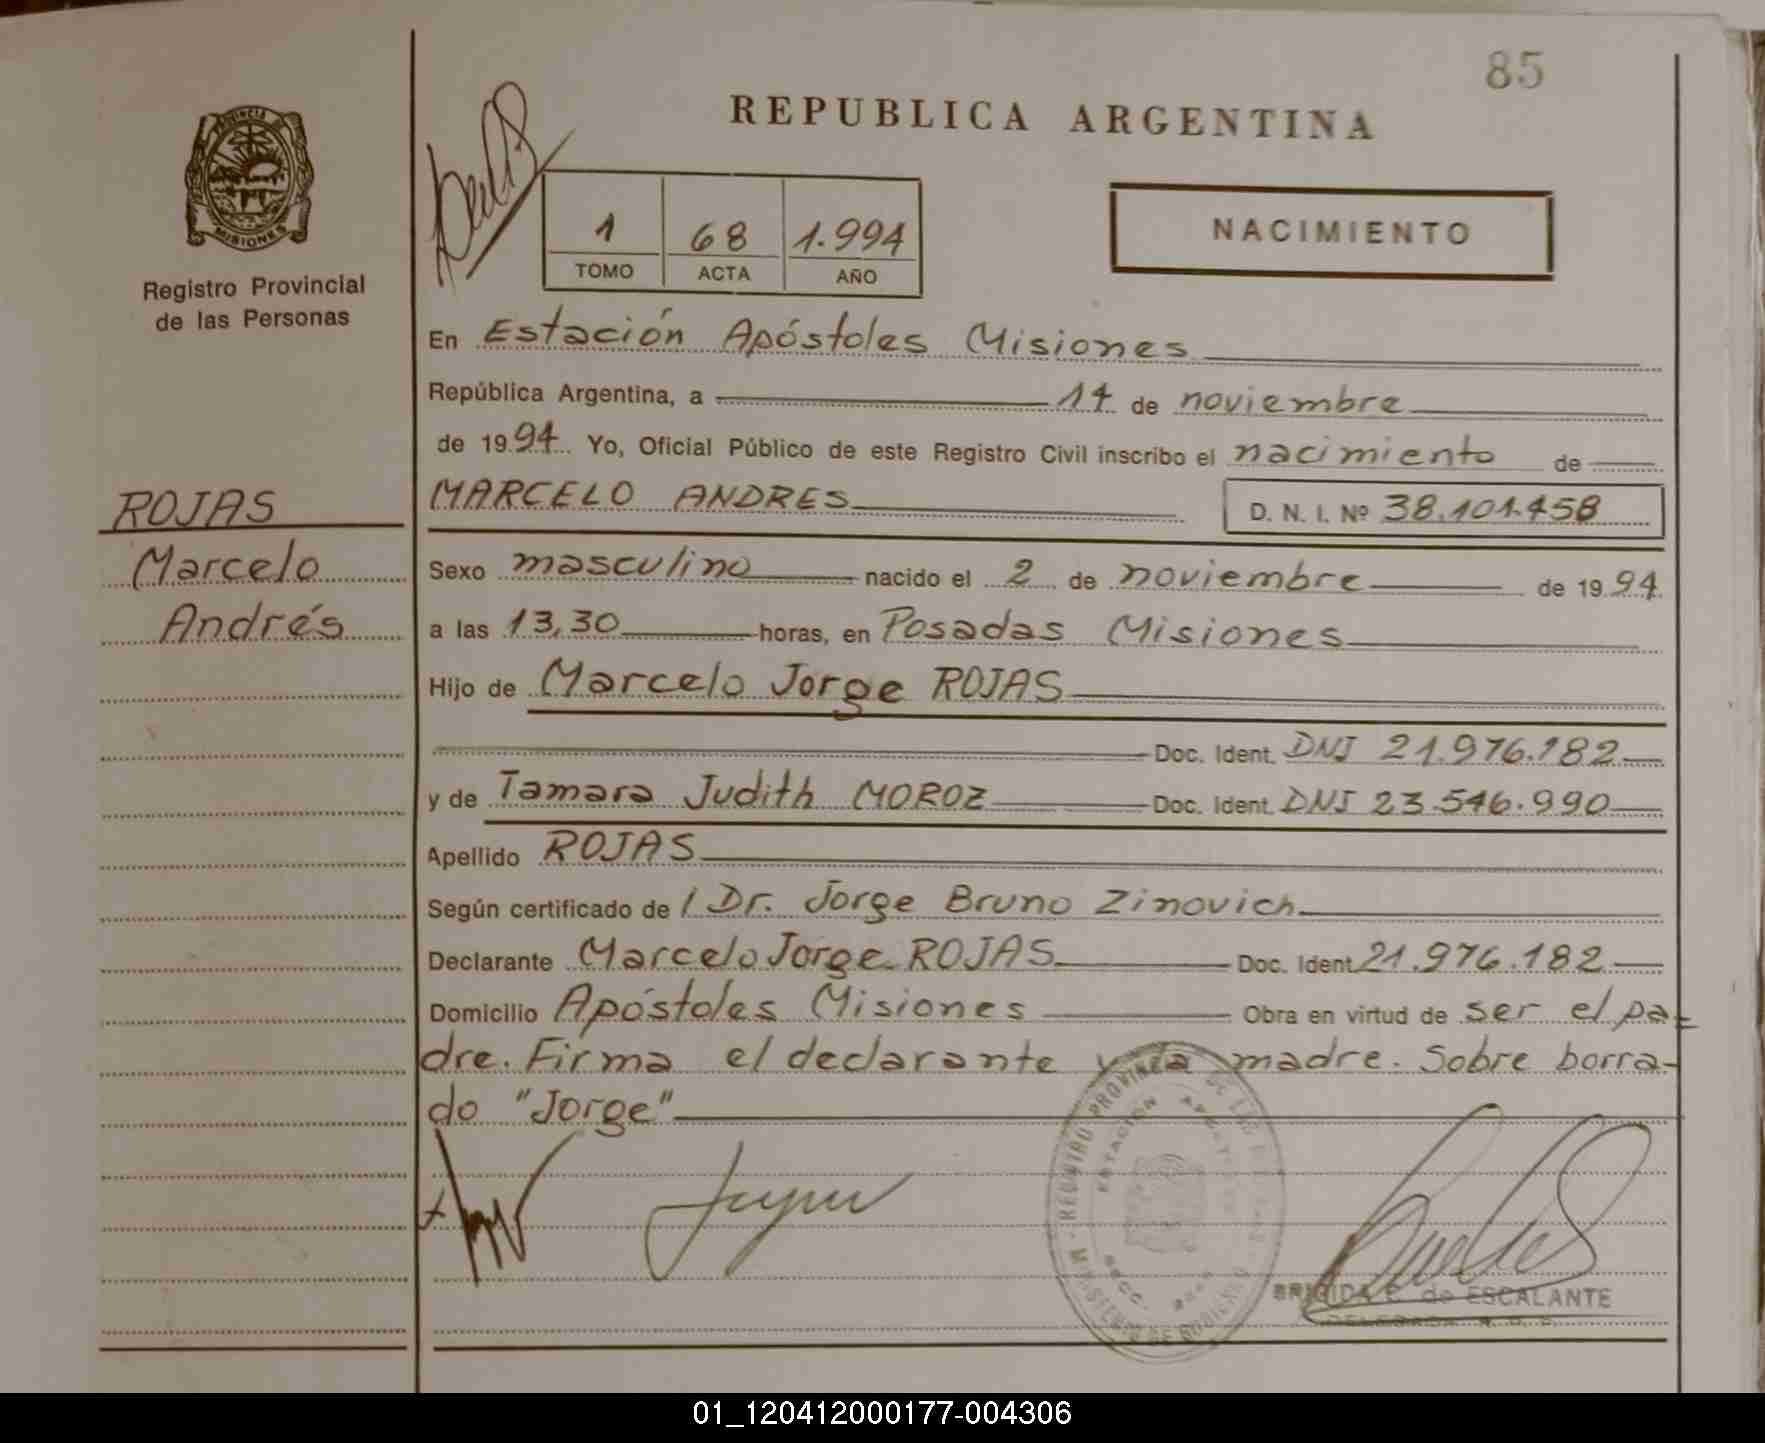 85
REPUBLICA ARGENTINA
PROVINCIA DE
MISIONES
Registro Provincial
de las Personas
1 68 1.994
TOMO ACTA AÑO
NACIMIENTO
En Estación Apóstoles Misiones
República Argentina, a 14 de noviembre
de 1994. Yo, Oficial Público de este Registro Civil inscribo el nacimiento de
ROJAS
Marcelo
Andrés
MARCELO ANDRES D. N. I. Nº 38.101.458
Sexo masculino nacido el 2 de noviembre de 1994.
a las 13,30 horas, en Posadas Misiones
Hijo de Marcelo Jorge ROJAS
Doc. Ident. DNI 21.976.182
y de Tamara Judith MOROZ Doc. Ident. DNI 23.546.990
Apellido ROJAS
Según certificado de / Dr. Jorge Bruno Zinovich
Declarante Marcelo Jorge ROJAS Doc. Ident. 21.976.182
Domicilio Apóstoles Misiones Obra en virtud de ser el pa-
dre. Firma el declarante y la madre. Sobre borra-
do "Jorge"
BRIGIDA de ESCALANTE
01_120412000177-004306